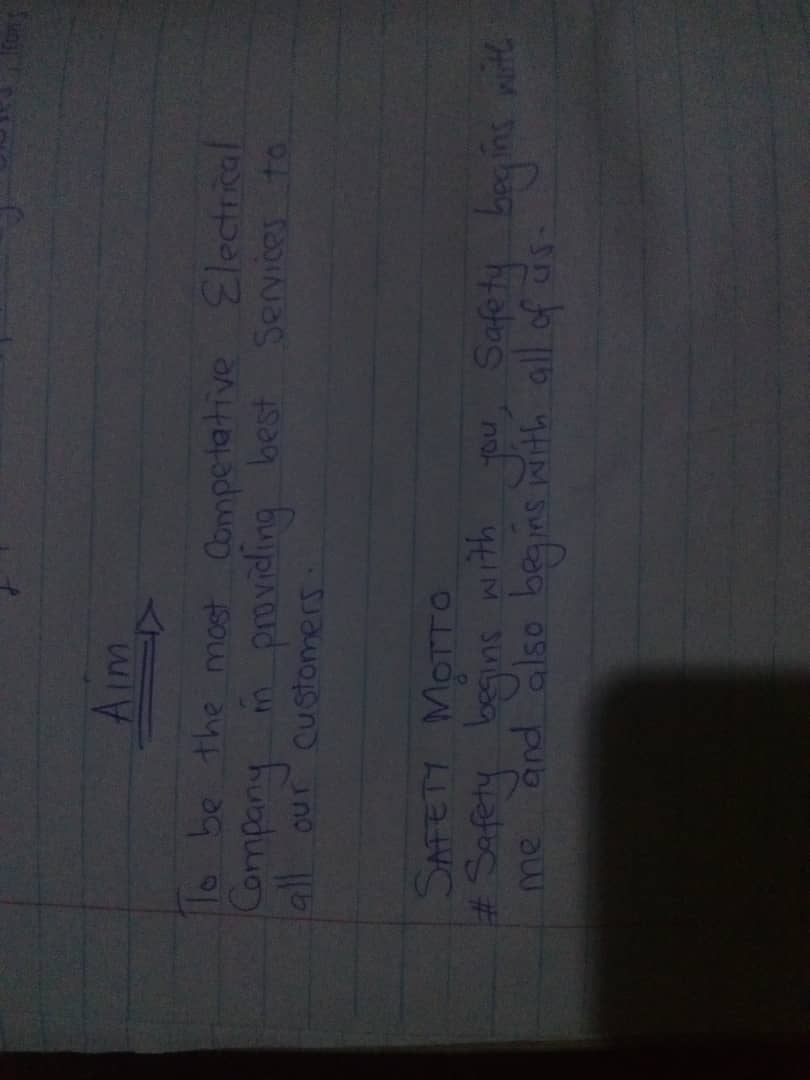 Aim
To be the most Competative Electrical
Company in providing best Services to
all our customers.
SAFETY MOTTO
# Safety begins with you, Safety begins with
me and also begins with all of us.